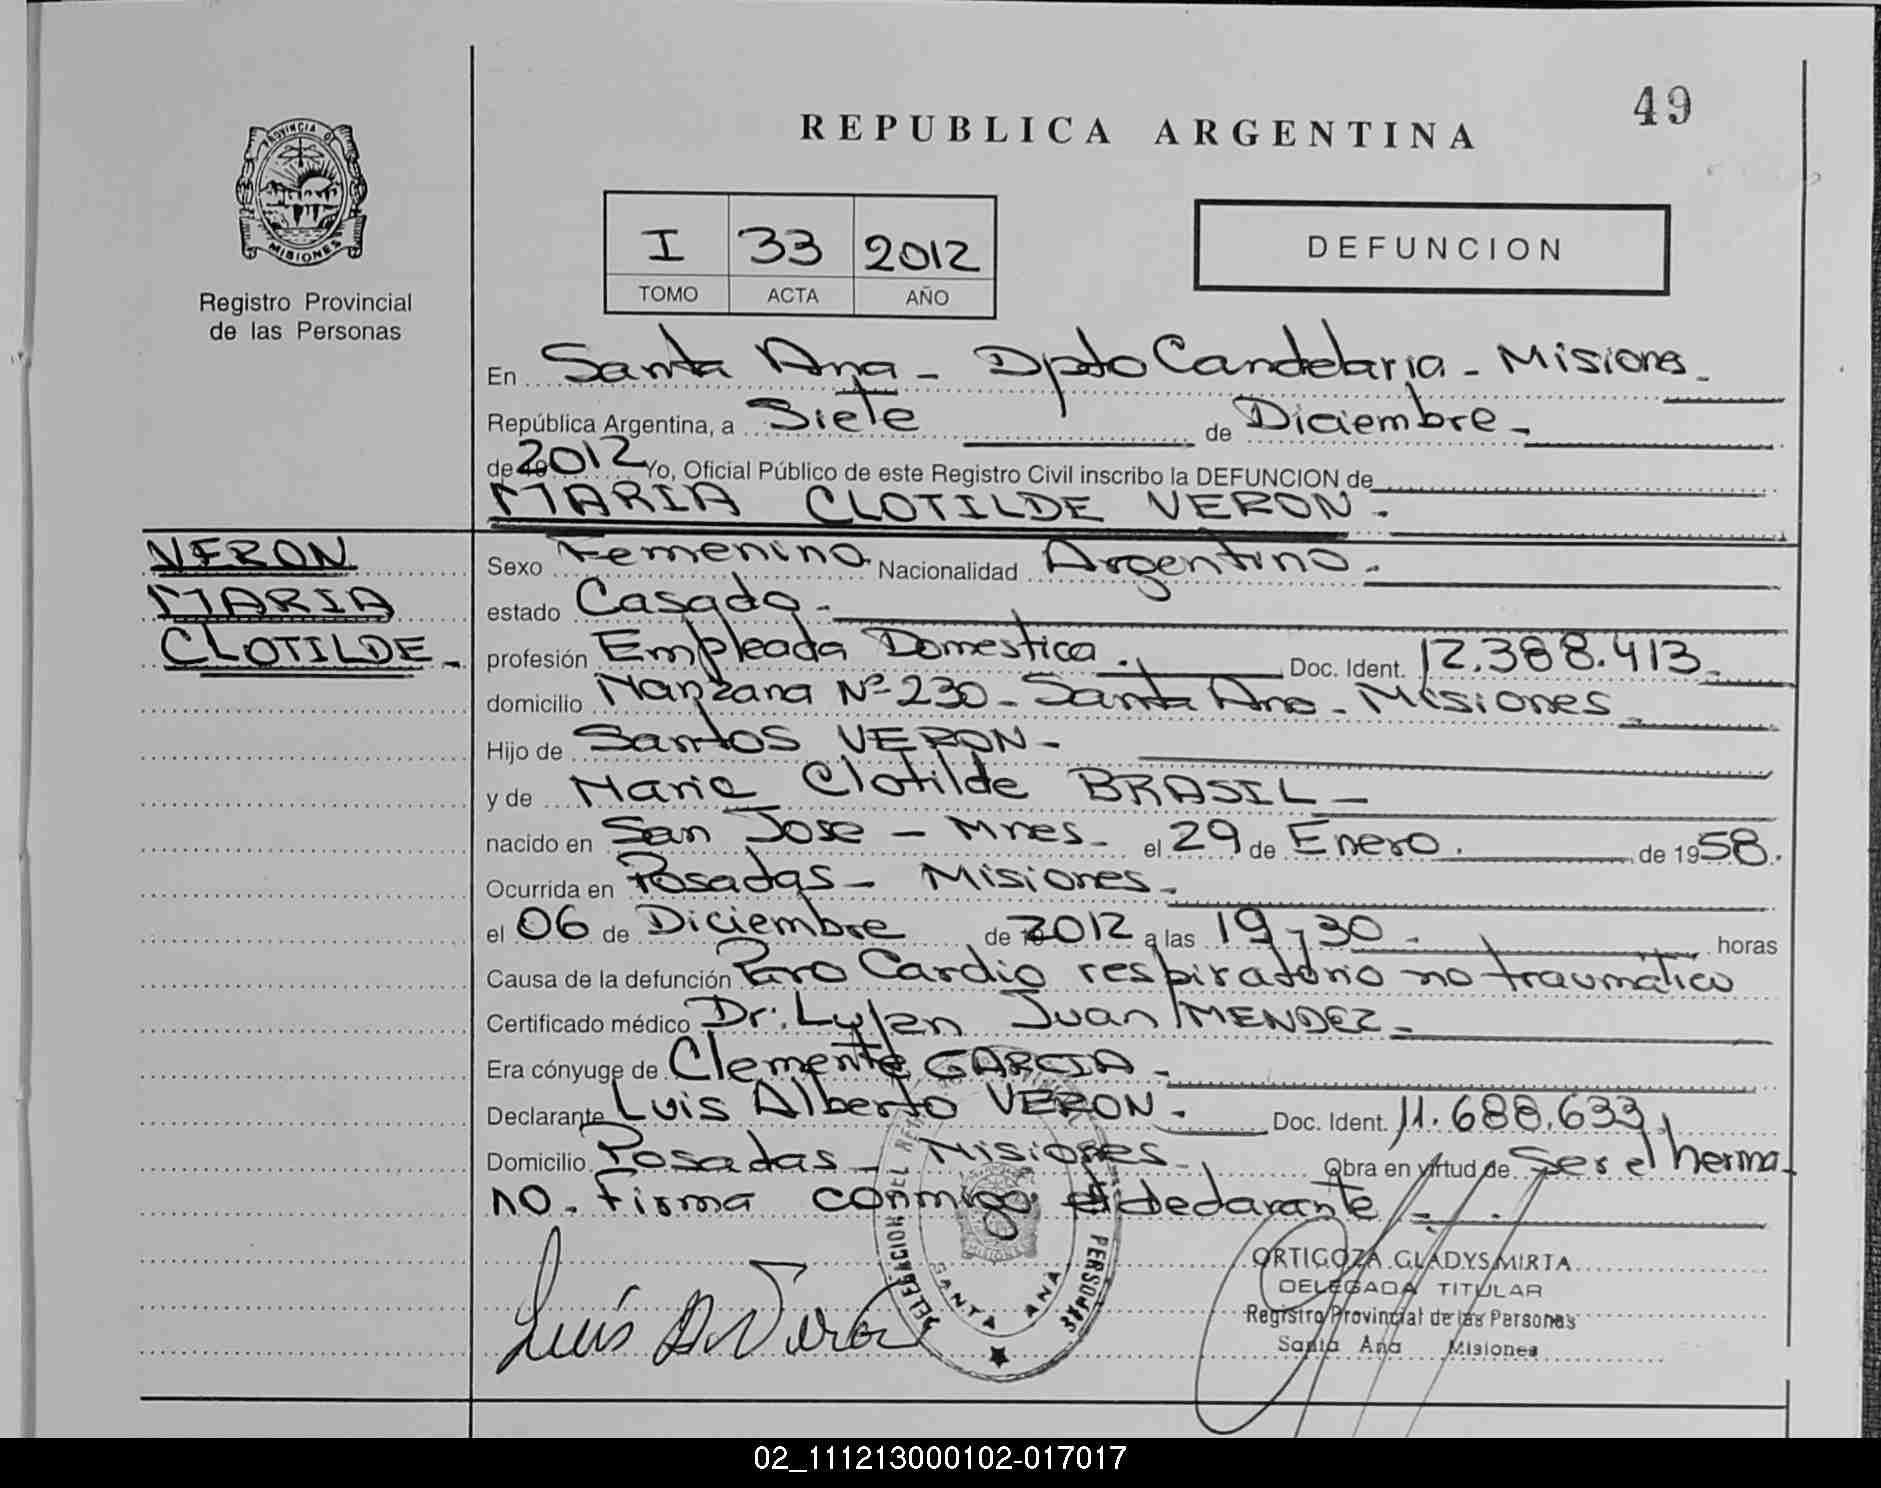 49
REPUBLICA ARGENTINA
PROVINCIA DE
MISIONES
Registro Provincial
de las Personas
I 33 2012
TOMO ACTA AÑO
DEFUNCION
En Santa Ana - Dpto Candelaria - Misiones -
República Argentina, a Siete de Diciembre -
de 2012 Yo, Oficial Público de este Registro Civil inscribo la DEFUNCION de
MARIA CLOTILDE VERON.
VERON
MARIA
CLOTILDE -
Sexo Femenino Nacionalidad Argentino.
estado Casada -
profesión Empleada Domestica. Doc. Ident. 12.388.413 -
domicilio Manzana Nº 230 - Santa Ana - Misiones -
Hijo de Santos VERON -
y de Maria Clotilde BRASIL -
nacido en San Jose - Mnes - el 29 de Enero. de 1958.
Ocurrida en Posadas - Misiones -
el 06 de Diciembre de 2012 a las 19,30 - horas
Causa de la defunción Paro Cardio respiratorio no traumatico
Certificado médico Dr: Juan MENDEZ -
Era cónyuge de Clemente GARCIA -
Declarante Luis Alberto VERON. Doc. Ident. 11.688.633
Domicilio Posadas - Misiones - Obra en virtud de Ser el herma
no. Firma conmigo el declarante.
DELEGACION DEL PERSONAS
MISIONES
SANTA ANA
Luis A. Veron
ORTIGOZA GLADYS MIRTA
DELEGADA TITULAR
Registro Provincial de las Personas
Santa Ana Misiones
02_111213000102-017017